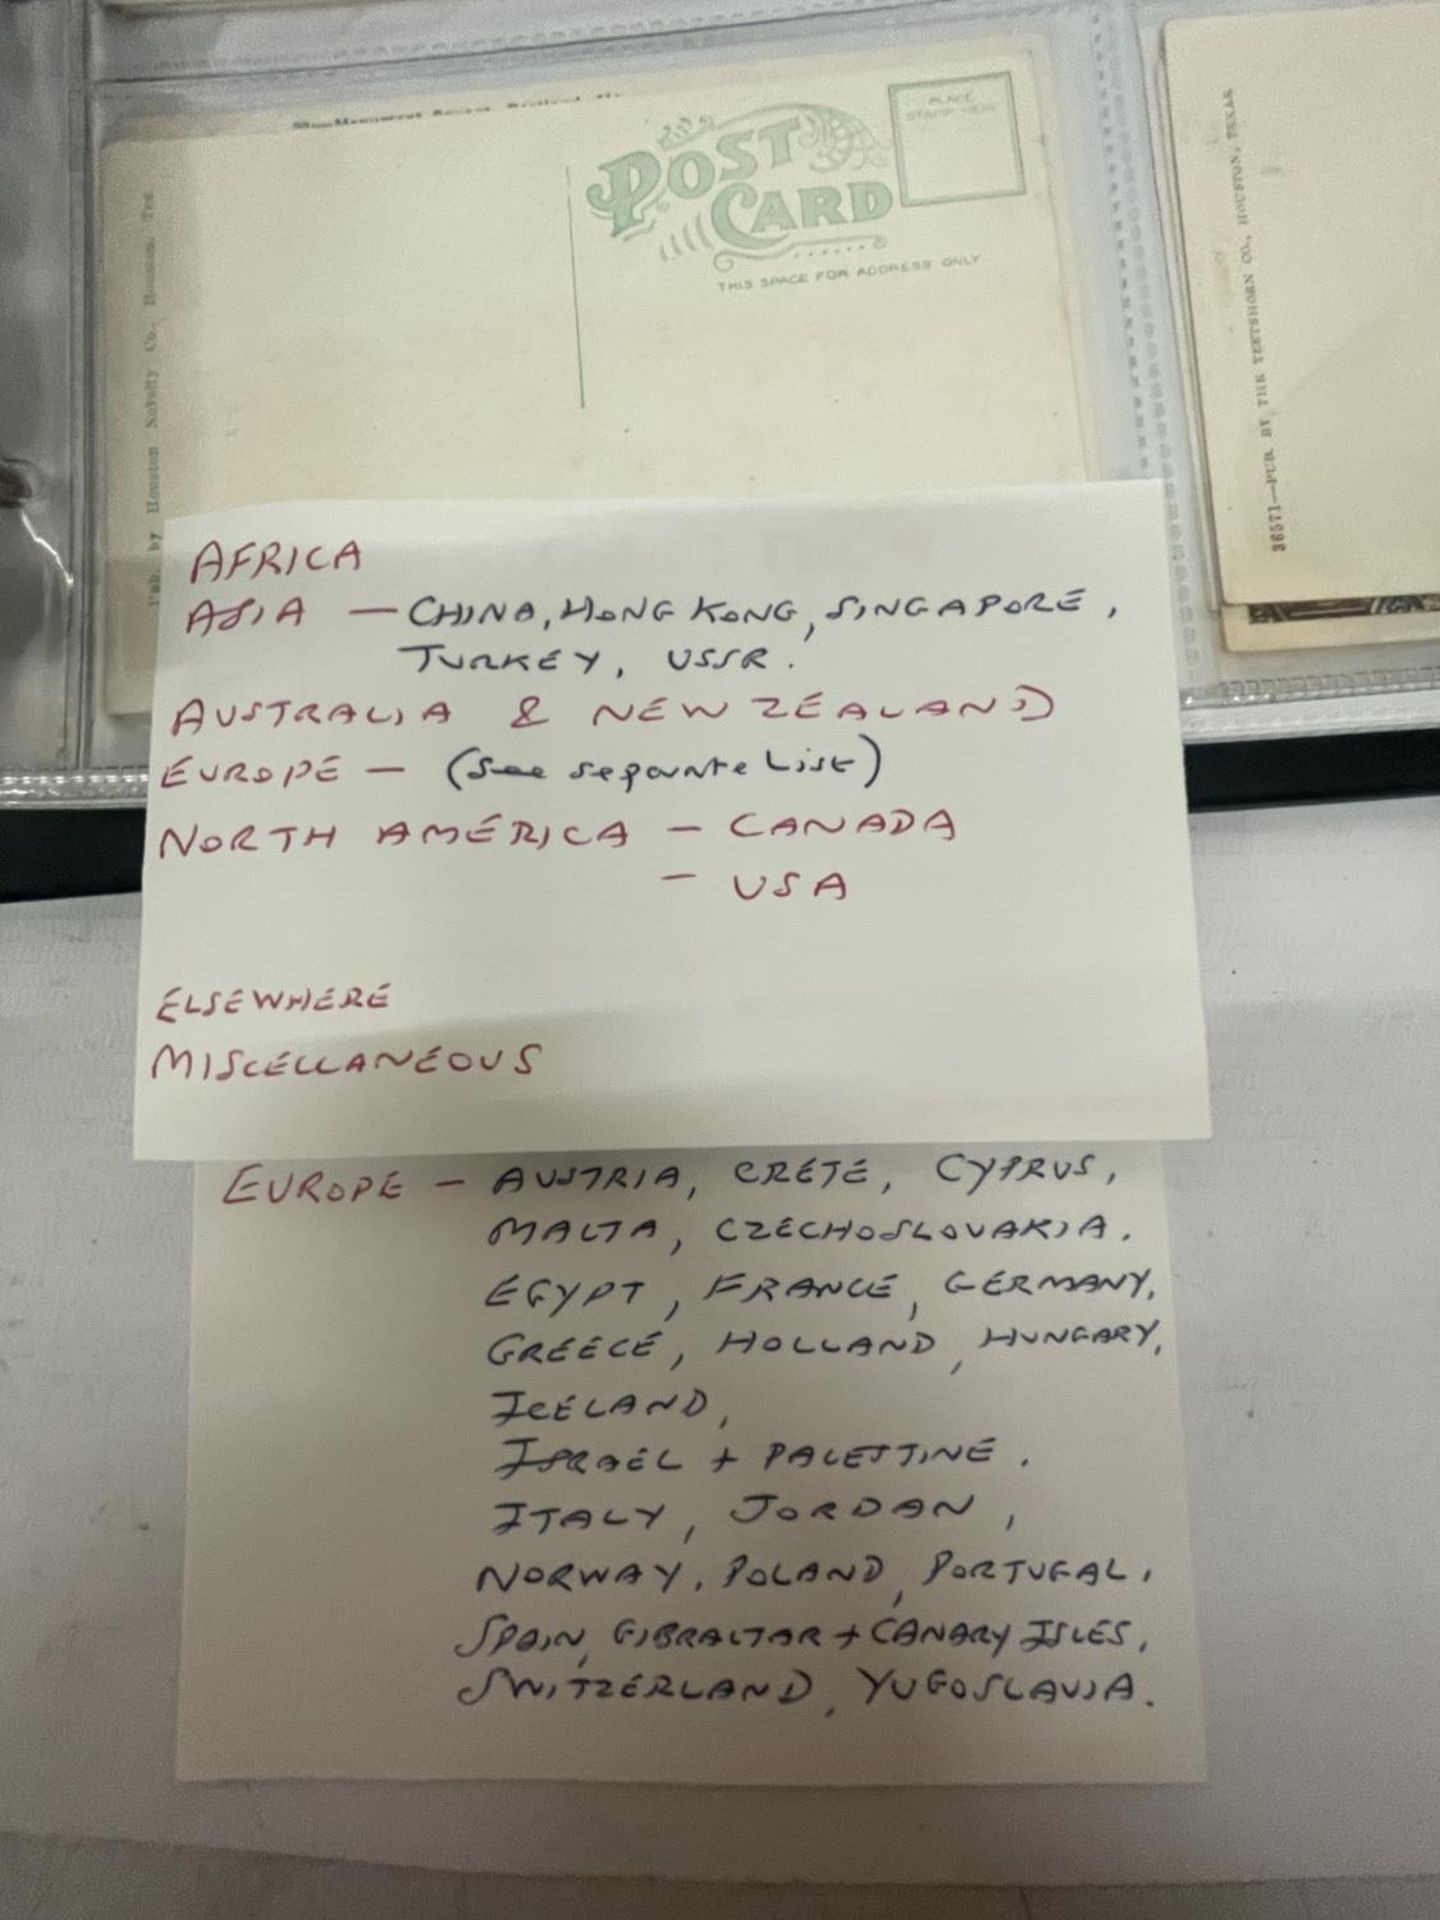 POST CARD
PLACE
STAMP HERE
THIS SPACE FOR ADDRESS ONLY
Pub. by Houston Novelty Co. Houston, Tex
36571—PUB. BY THE TEETSHORN CO., HOUSTON, TEXAS
AFRICA
ASIA — CHINA, HONG KONG, SINGAPORE,
TURKEY, USSR.
AUSTRALIA & NEW ZEALAND
EUROPE — (See separate List)
NORTH AMERICA — CANADA
— USA
ELSEWHERE
MISCELLANEOUS
EUROPE — AUSTRIA, CRETE, CYPRUS,
MALTA, CZECHOSLOVAKIA.
EGYPT, FRANCE, GERMANY,
GREECE, HOLLAND, HUNGARY,
ICELAND,
ISRAEL + PALESTINE.
ITALY, JORDAN,
NORWAY, POLAND, PORTUGAL,
SPAIN, GIBRALTAR + CANARY ISLES,
SWITZERLAND, YUGOSLAVIA.